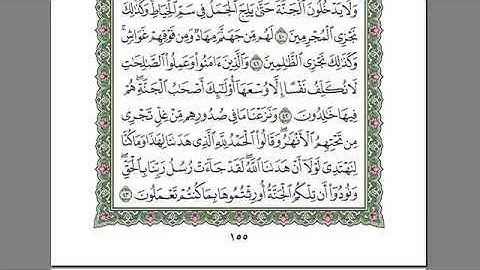 وَلَا يَدۡخُلُونَ ٱلۡجَنَّةَ حَتَّىٰ يَلِجَ ٱلۡجَمَلُ فِي سَمِّ ٱلۡخِيَاطِۚ وَكَذَٰلِكَ
نَجۡزِي ٱلۡمُجۡرِمِينَ ٤٠ لَهُم مِّن جَهَنَّمَ مِهَادٞ وَمِن فَوۡقِهِمۡ غَوَاشٖۚ
وَكَذَٰلِكَ نَجۡزِي ٱلظَّٰلِمِينَ ٤١ وَٱلَّذِينَ ءَامَنُواْ وَعَمِلُواْ ٱلصَّٰلِحَٰتِ
لَا نُكَلِّفُ نَفۡسًا إِلَّا وُسۡعَهَآ أُوْلَٰٓئِكَ أَصۡحَٰبُ ٱلۡجَنَّةِۖ هُمۡ
فِيهَا خَٰلِدُونَ ٤٢ وَنَزَعۡنَا مَا فِي صُدُورِهِم مِّنۡ غِلّٖ تَجۡرِي
مِن تَحۡتِهِمُ ٱلۡأَنۡهَٰرُۖ وَقَالُواْ ٱلۡحَمۡدُ لِلَّهِ ٱلَّذِي هَدَىٰنَا لِهَٰذَا وَمَا كُنَّا
لِنَهۡتَدِيَ لَوۡلَآ أَنۡ هَدَىٰنَا ٱللَّهُۖ لَقَدۡ جَآءَتۡ رُسُلُ رَبِّنَا بِٱلۡحَقِّۖ
وَنُودُوٓاْ أَن تِلۡكُمُ ٱلۡجَنَّةُ أُورِثۡتُمُوهَا بِمَا كُنتُمۡ تَعۡمَلُونَ ٤٣
١٥٥